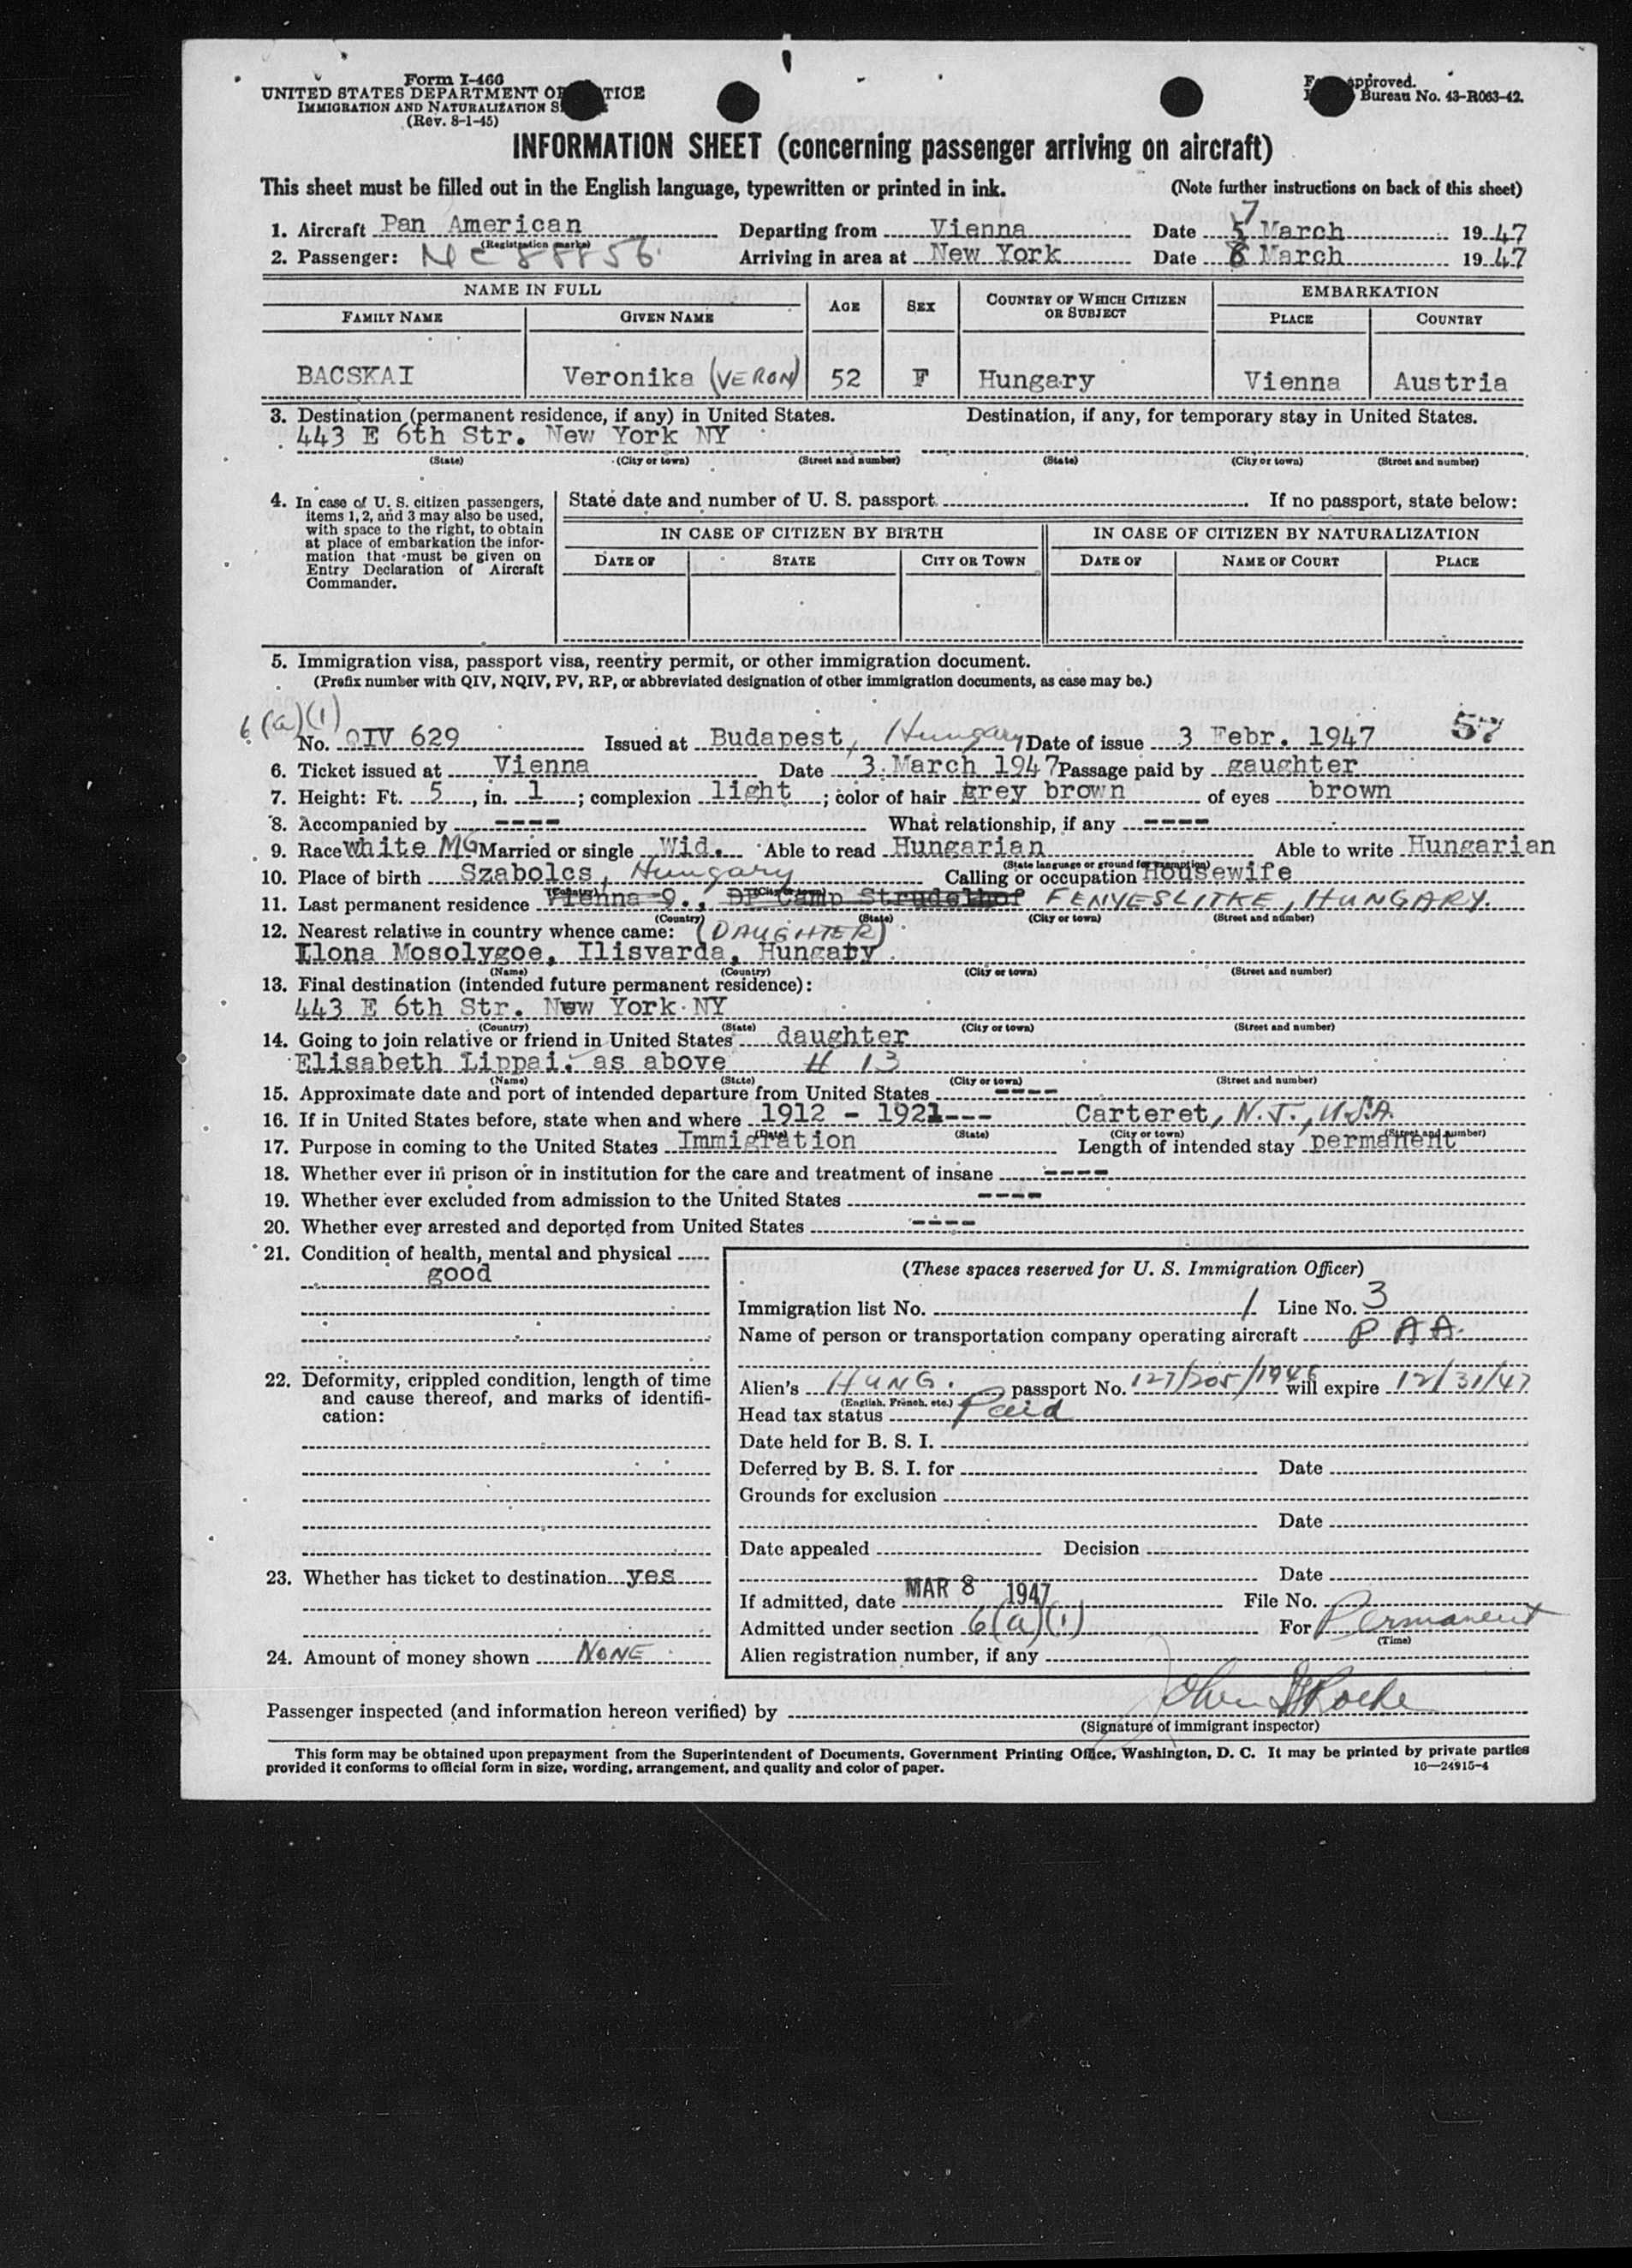 Form I-466
UNITED STATES DEPARTMENT OF JUSTICE
IMMIGRATION AND NATURALIZATION S
(Rev. 8-1-45)
Form approved.
Bureau No. 43-R063-42.
INFORMATION SHEET (concerning passenger arriving on aircraft)
This sheet must be filled out in the English language, typewritten or printed in ink. (Note further instructions on back of this sheet)
7
1. Aircraft Pan American Departing from Vienna Date 5 March 1947
(Registration marks)
2. Passenger: NC 88856 Arriving in area at New York Date 8 March 1947
NAME IN FULL AGE SEX COUNTRY OF WHICH CITIZEN OR SUBJECT EMBARKATION
FAMILY NAME GIVEN NAME PLACE COUNTRY
BACSKAI Veronika (VERON) 52 F Hungary Vienna Austria
3. Destination (permanent residence, if any) in United States. Destination, if any, for temporary stay in United States.
443 E 6th Str. New York NY
(State) (City or town) (Street and number) (State) (City or town) (Street and number)
4. In case of U. S. citizen passengers, items 1, 2, and 3 may also be used, with space to the right, to obtain at place of embarkation the information that must be given on Entry Declaration of Aircraft Commander.
State date and number of U. S. passport If no passport, state below:
IN CASE OF CITIZEN BY BIRTH IN CASE OF CITIZEN BY NATURALIZATION
DATE OF STATE CITY OR TOWN DATE OF NAME OF COURT PLACE
5. Immigration visa, passport visa, reentry permit, or other immigration document.
(Prefix number with QIV, NQIV, PV, RP, or abbreviated designation of other immigration documents, as case may be.)
6(a)(1)
No. QIV 629 Issued at Budapest, Hungary Date of issue 3 Febr. 1947 57
6. Ticket issued at Vienna Date 3 March 1947 Passage paid by gaughter
7. Height: Ft. 5, in. 1; complexion light; color of hair grey brown of eyes brown
8. Accompanied by ---- What relationship, if any ----
9. Race white MG Married or single Wid. Able to read Hungarian Able to write Hungarian
(State language or ground for exemption)
10. Place of birth Szabolcs, Hungary Calling or occupation Housewife
(Country) (City or town)
11. Last permanent residence Vienna 9., DP Camp Strudelhof FENYESLITKE, HUNGARY.
(Country) (State) (City or town) (Street and number)
12. Nearest relative in country whence came: (DAUGHTER)
Ilona Mosolygoe, Ilisvarda, Hungary
(Name) (Country) (City or town) (Street and number)
13. Final destination (intended future permanent residence):
443 E 6th Str. New York NY
(Country) (State) (City or town) (Street and number)
14. Going to join relative or friend in United States daughter
Elisabeth Lippai. as above # 13
(Name) (State) (City or town) (Street and number)
15. Approximate date and port of intended departure from United States ----
16. If in United States before, state when and where 1912 - 1921--- Carteret, N.J., U.S.A.
(Date) (State) (City or town) (Street and number)
17. Purpose in coming to the United States Immigration Length of intended stay permanent
18. Whether ever in prison or in institution for the care and treatment of insane ----
19. Whether ever excluded from admission to the United States ----
20. Whether ever arrested and deported from United States ----
21. Condition of health, mental and physical
good
22. Deformity, crippled condition, length of time and cause thereof, and marks of identification:
23. Whether has ticket to destination yes
24. Amount of money shown NONE
(These spaces reserved for U. S. Immigration Officer)
Immigration list No. 1 Line No. 3
Name of person or transportation company operating aircraft P A A.
Alien's HUNG. passport No. 127/205/1946 will expire 12/31/47
(English, French, etc.)
Head tax status Paid
Date held for B. S. I.
Deferred by B. S. I. for Date
Grounds for exclusion
Date
Date appealed Decision
Date
If admitted, date MAR 8 1947 File No.
Admitted under section 6(a)(1) For Permanent
(Time)
Alien registration number, if any
Passenger inspected (and information hereon verified) by
(Signature of immigrant inspector)
This form may be obtained upon prepayment from the Superintendent of Documents, Government Printing Office, Washington, D. C. It may be printed by private parties
provided it conforms to official form in size, wording, arrangement, and quality and color of paper. 16—24915-4